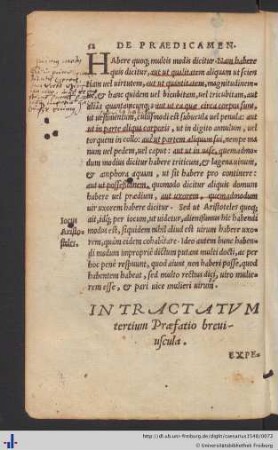 52 DE PRÆDICAMEN.
HAbere quoq; multis modis dicitur. Nam habere
quis dicitur, aut ut qualitatem aliquam ut scien
tiam uel uirtutem, aut ut quantitatem, magnitudinem-
q́;, et hanc quidem uel bicubitam, uel tricubitam, aut
aliàs quantamcunq; aut ut ea quæ circa corpus sunt,
ut uestimentum, cuiusmodi est subucula uel penula: aut
ut in parte aliqua corporis, ut in digito annulum, uel
torquem in collo: aut ut partem aliquam sui, nempe ma
num uel pedem, uel caput: aut ut in uase, quemadmo-
dum modius dicitur habere triticum, & lagena uinum,
& amphora aquam, ut sit habere pro continere:
aut ut possessionem, quomodo dicitur aliquis domum
habere uel prædium, aut uxorem, quemadmodum
uir uxorem habere dicitur. Sed ut Aristoteles quoq;
Iocus
Aristo-
telis.
ait, idq; per iocum, ut uidetur, alienissimus hic habendi
modus est, siquidem nihil aliud est uirum habere uxo-
rem, quàm eidem cohabitare. Ideo autem hunc haben-
di modum impropriè dictum putant multi docti, ac per
hoc penè respuunt, quod aiunt non haberi posse, quod
habentem habeat, sed multo rectius dici, uiro mulie-
rem esse, & pari uice mulieri uirum.
IN TRACTATVM
tertium Præfatio breui-
uscula.
EXPE-
http://dl.ub.uni-freiburg.de/diglit/caesarius1548/0072
© Universitätsbibliothek Freiburg